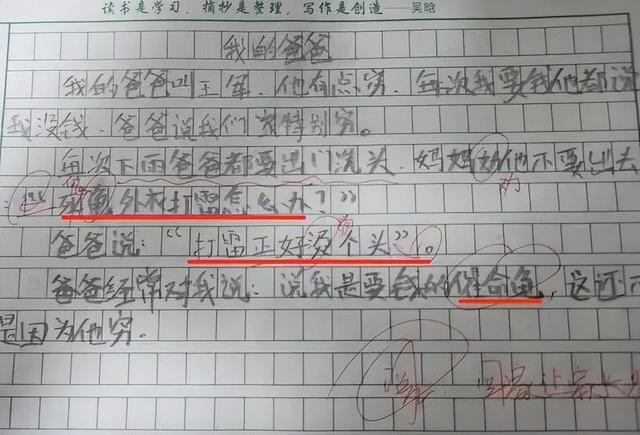 读书是学习，摘抄是整理，写作是创造——吴晗
我的爸爸
我的爸爸叫王军．他有点穷．每次我要钱他都说
我没钱．爸爸说我们家特别穷。
每次下雨爸爸都要出门洗头．妈妈他不要出去
打雷怎么办？”
爸爸说：“打雷正好烫个头”。
爸爸经常对我说：说我是要钱的，这还不
是因为他穷．
回家让家长